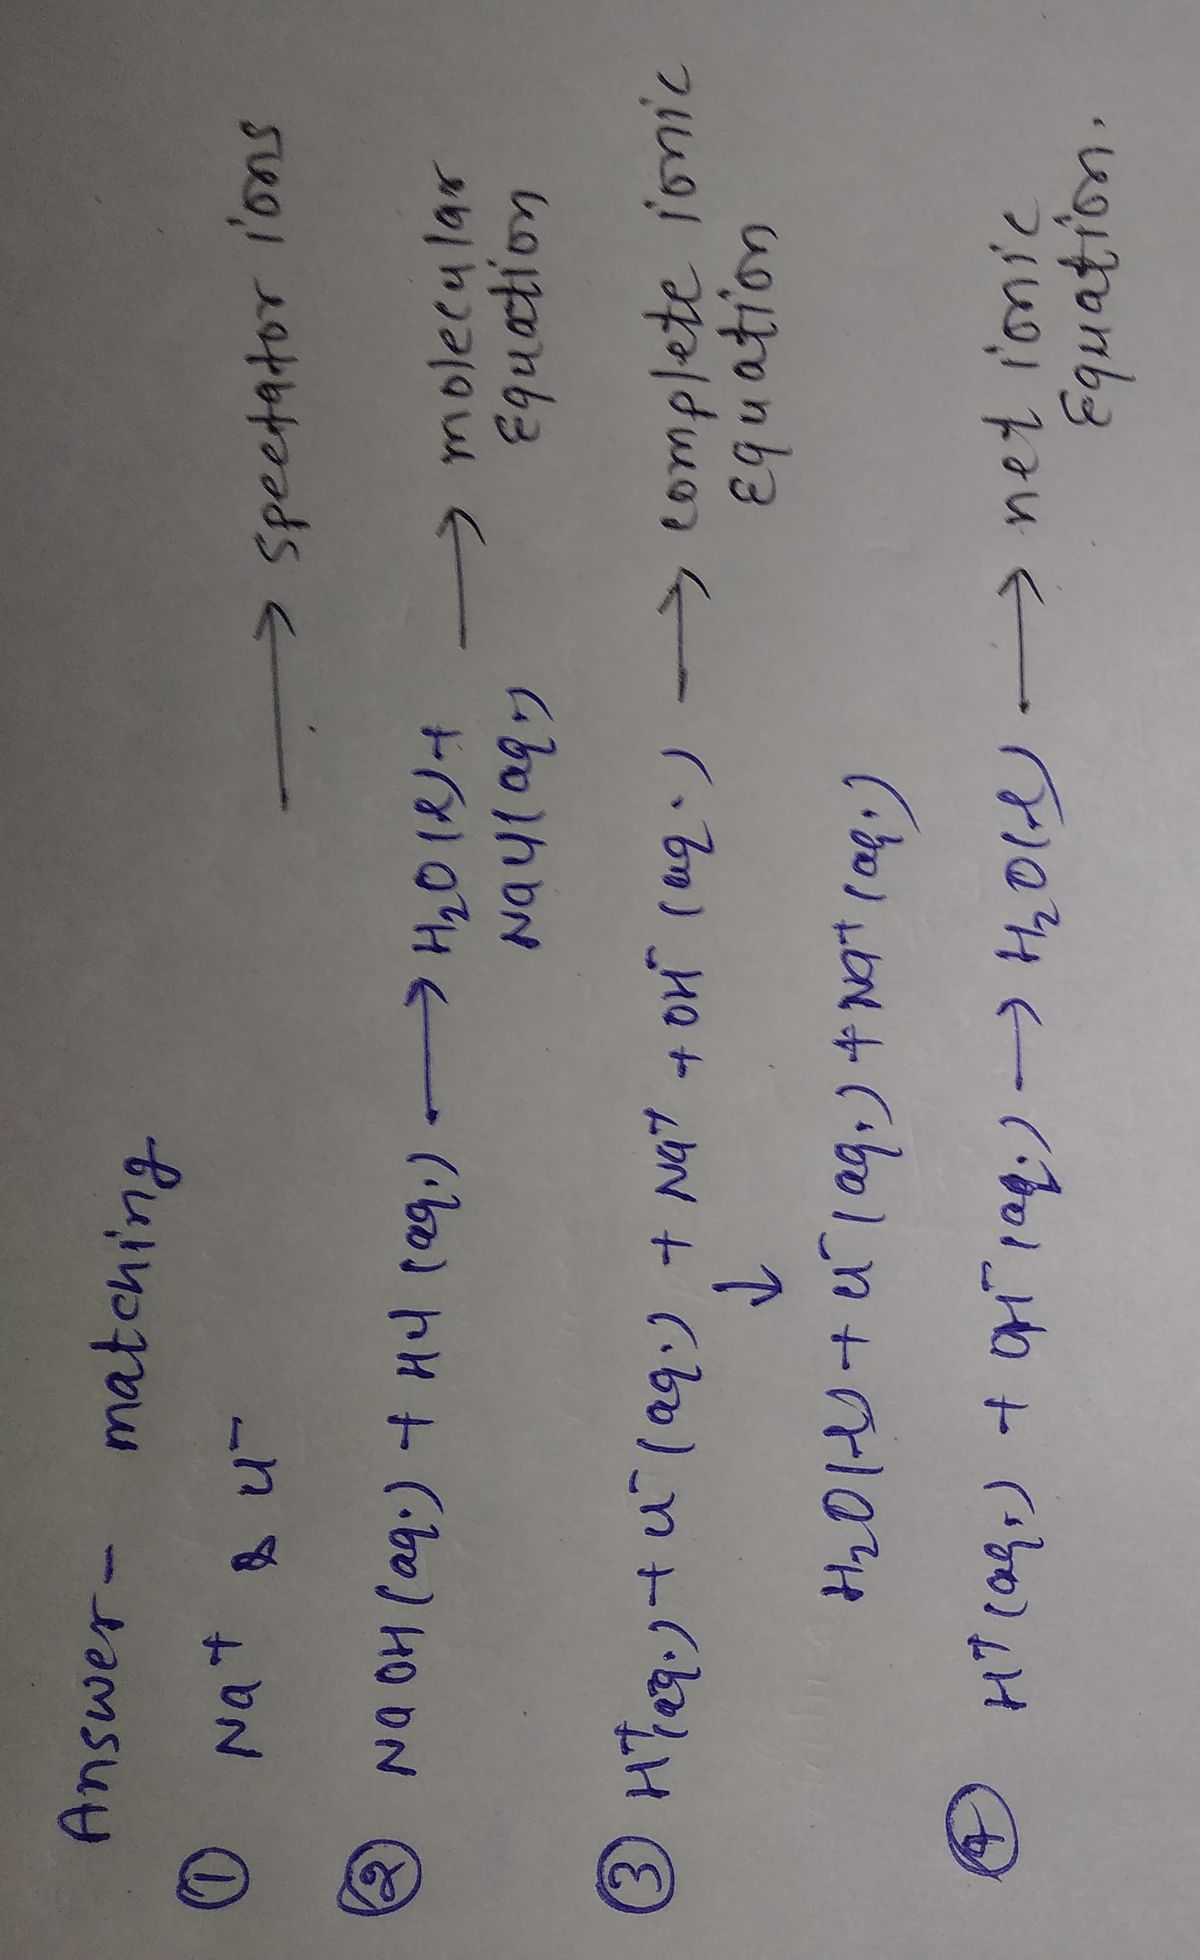 Answer - matching
① Na⁺ & Cl⁻ ⟶ Spectator ions
② NaOH (aq.) + HCl (aq.) ⟶ H₂O(l) + ⟶ molecular
NaCl(aq.) Equation
③ H⁺(aq.) + Cl⁻ (aq.) + Na⁺ + OH⁻ (aq.) ⟶ complete ionic
↓ Equation
H₂O(l) + Cl⁻ (aq.) + Na⁺ (aq.)
④ H⁺ (aq.) + OH⁻ (aq.) ⟶ H₂O(l) ⟶ net ionic
Equation.